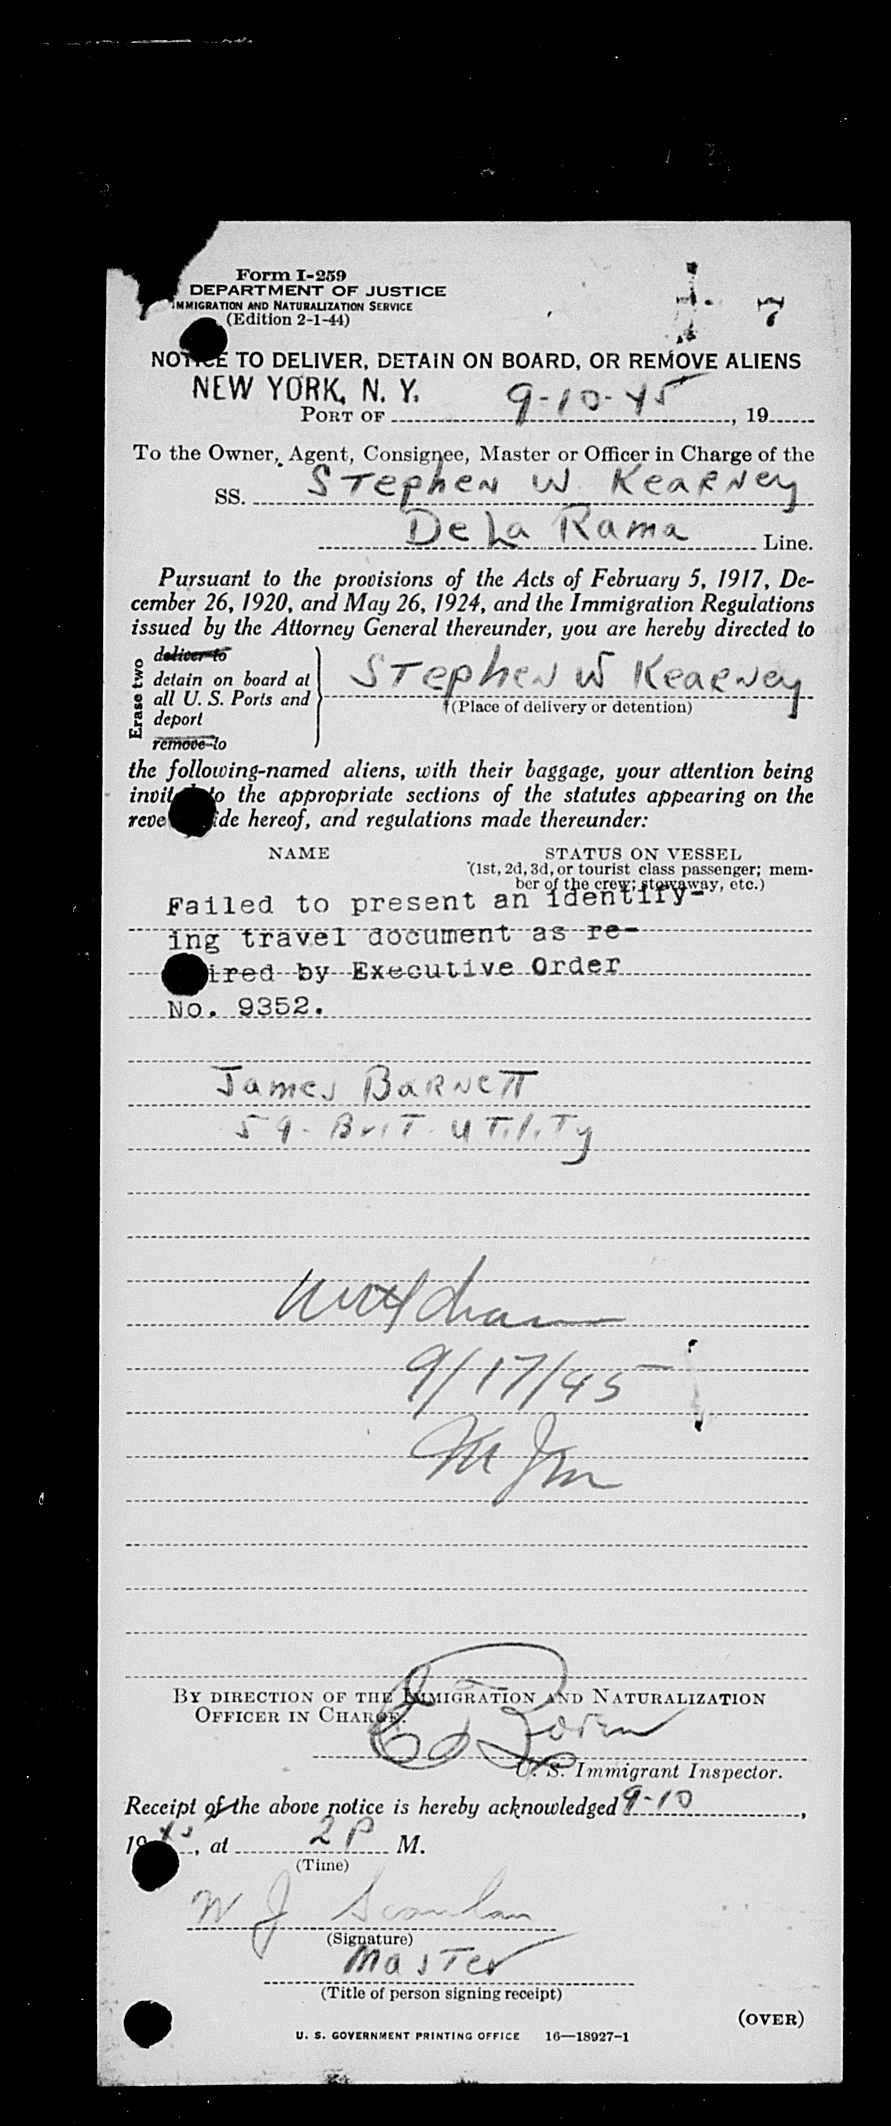 Form I-259
DEPARTMENT OF JUSTICE
IMMIGRATION AND NATURALIZATION SERVICE
(Edition 2-1-44)
7
NOTICE TO DELIVER, DETAIN ON BOARD, OR REMOVE ALIENS
NEW YORK, N. Y.
PORT OF 9-10-45, 19
To the Owner, Agent, Consignee, Master or Officer in Charge of the
SS. Stephen W Kearney
De La Rama Line.
Pursuant to the provisions of the Acts of February 5, 1917, De-
cember 26, 1920, and May 26, 1924, and the Immigration Regulations
issued by the Attorney General thereunder, you are hereby directed to
Erase two
deliver to
detain on board at
all U. S. Ports and
deport
remove to
Stephen W Kearney
(Place of delivery or detention)
the following-named aliens, with their baggage, your attention being
invited to the appropriate sections of the statutes appearing on the
reve de hereof, and regulations made thereunder:
NAME STATUS ON VESSEL
(1st, 2d, 3d, or tourist class passenger; mem-
ber of the crew; stowaway, etc.)
Failed to present an identify-
ing travel document as re-
ired by Executive Order
No. 9352.
James Barnett
59 - Brit - Utility
9/17/45
BY DIRECTION OF THE IMMIGRATION AND NATURALIZATION
OFFICER IN CHARGE.
U. S. Immigrant Inspector.
Receipt of the above notice is hereby acknowledged 9-10,
1945, at 2 P M.
(Time)
W J Scanlan
(Signature)
Master
(Title of person signing receipt)
(OVER)
U. S. GOVERNMENT PRINTING OFFICE 16—18927-1